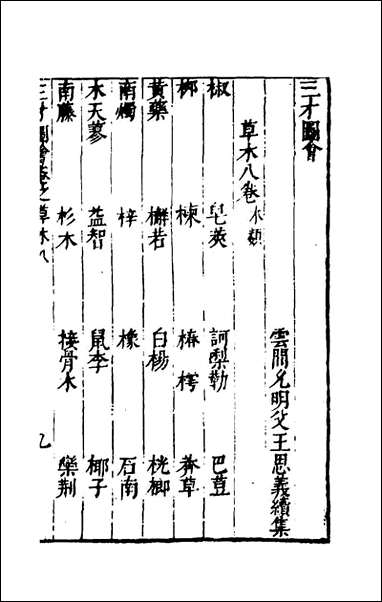 三才圖會
雲間允明父王思義續集
草木八卷 木類
椒 皂莢 訶梨勒 巴荳
柳 楝 椿樗 莽草
黃藥 槲若 白楊 桄榔
南燭 梓 橡 石南
木天蓼 益智 鼠李 椰子
南藤 杉木 接骨木 欒荆
三才圖會卷之草木八